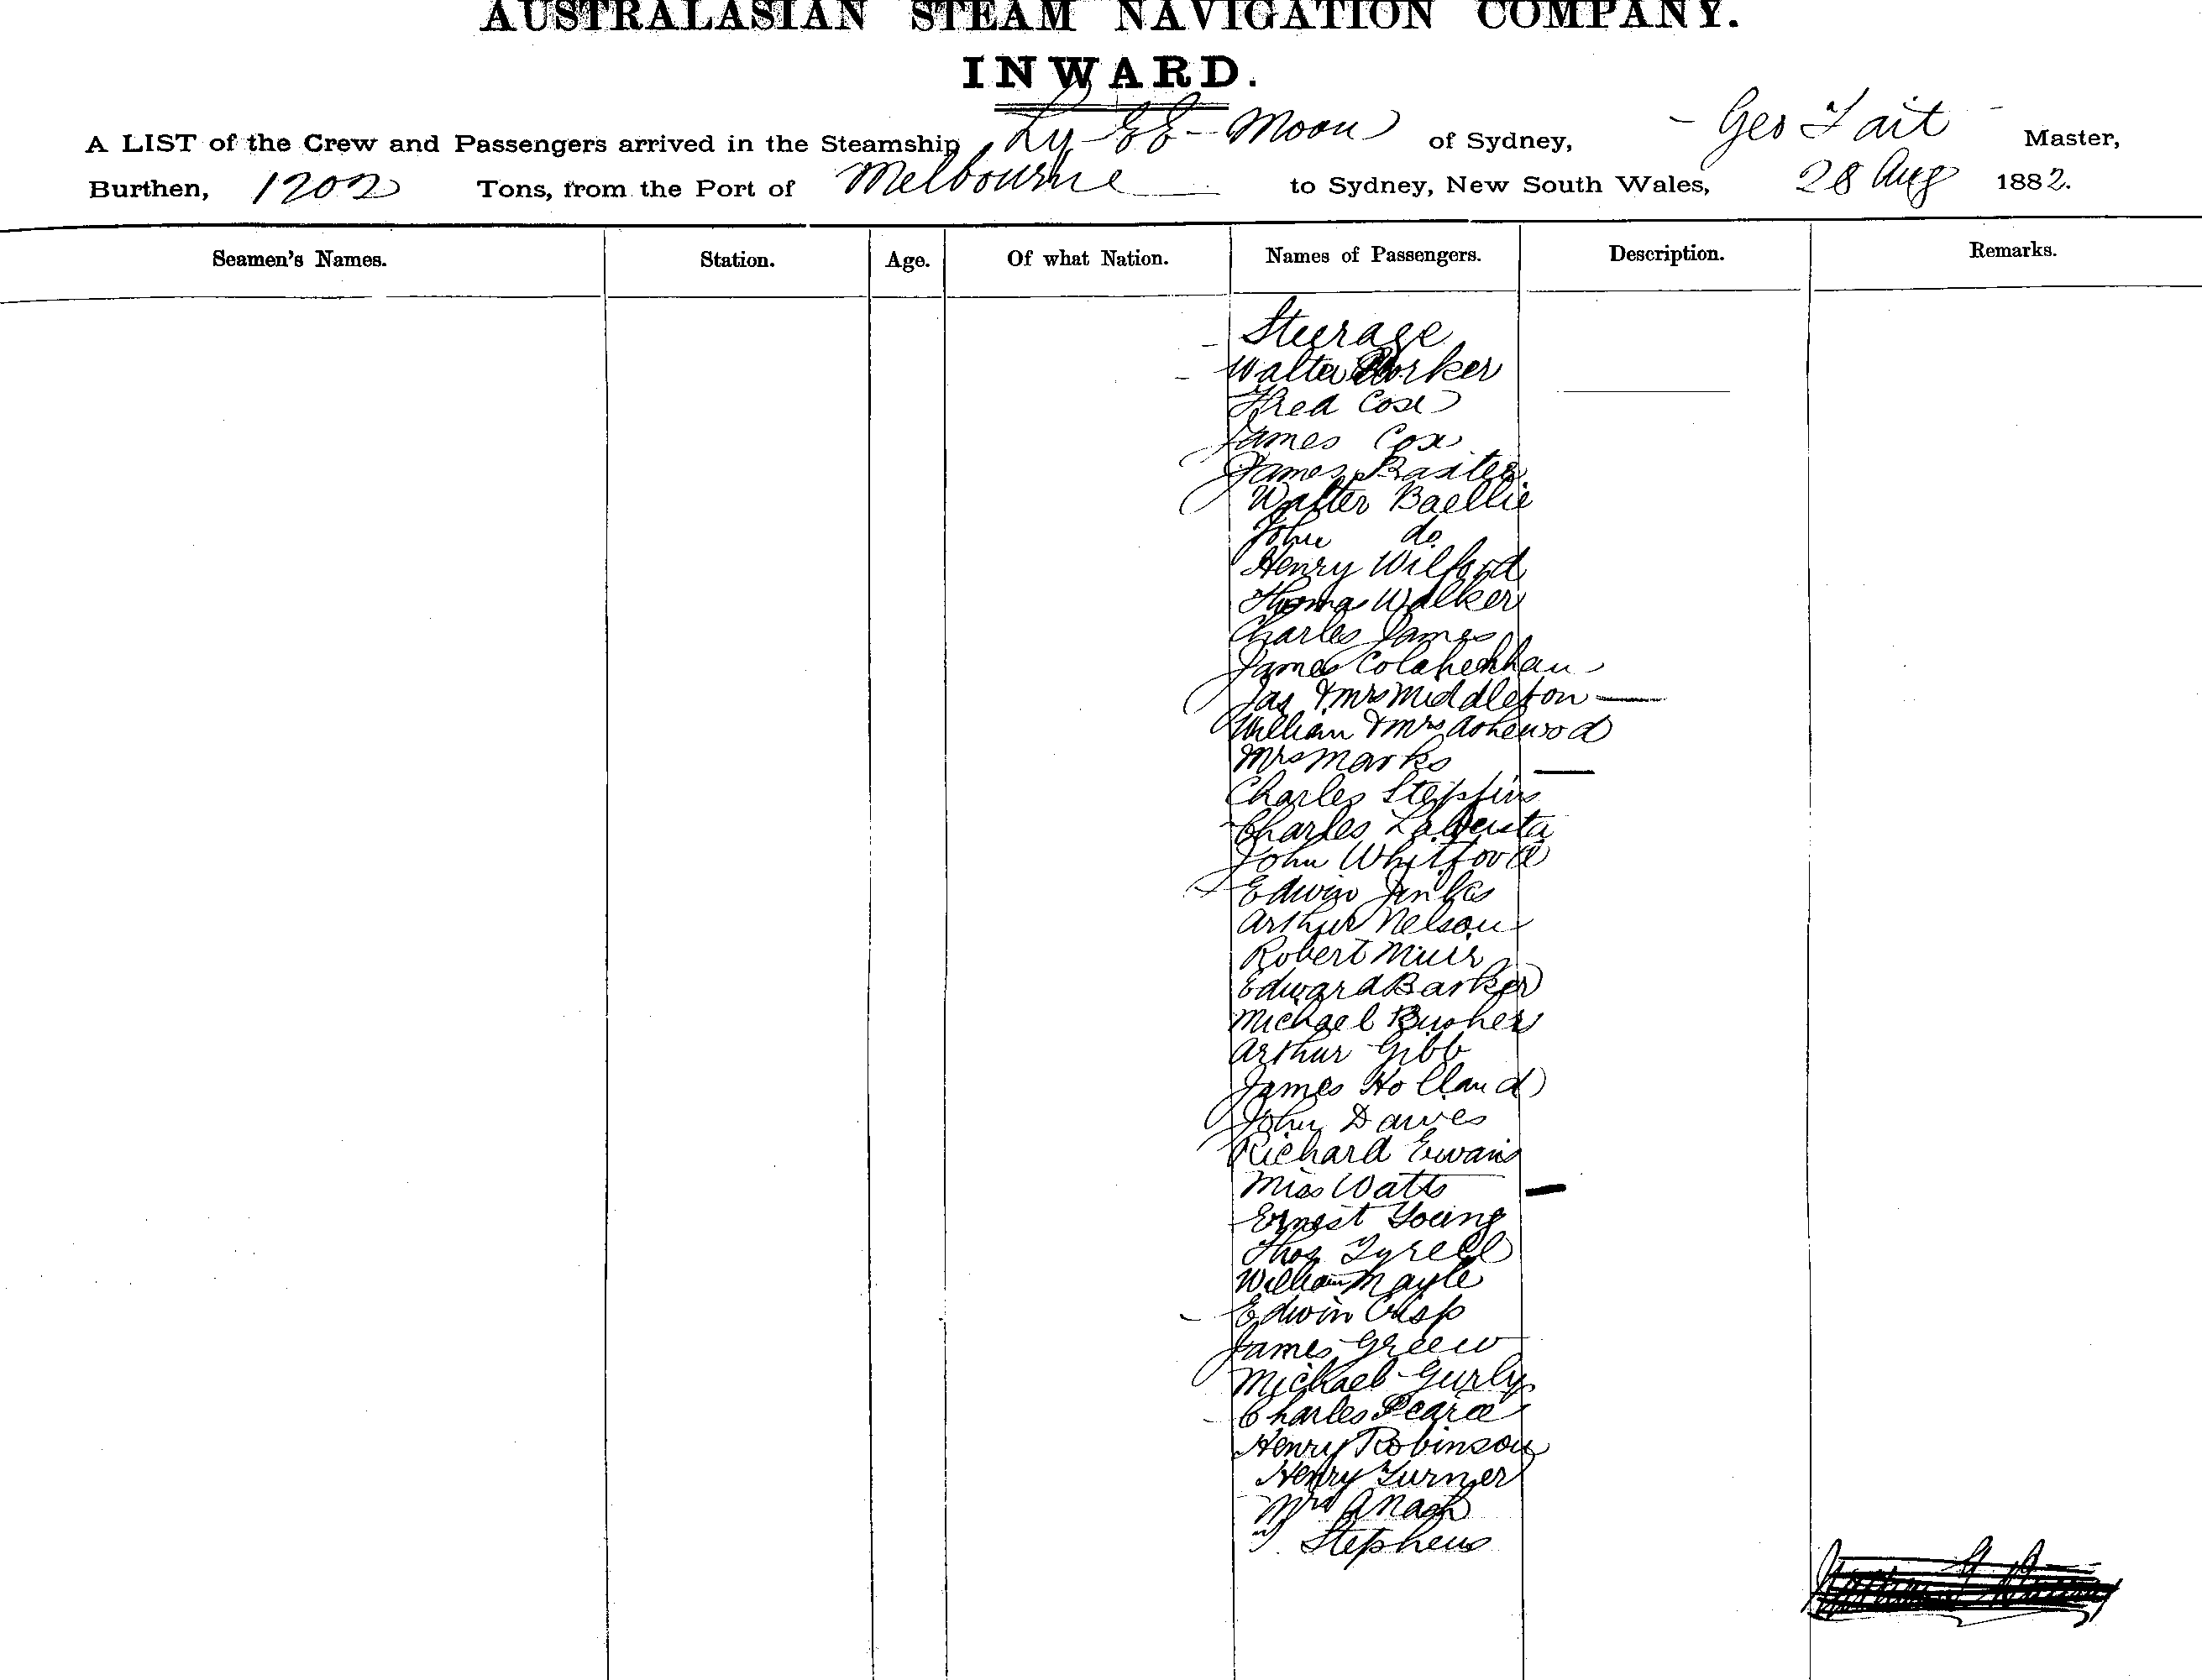 AUSTRALASIAN STEAM NAVIGATION COMPANY.
INWARD.
A LIST of the Crew and Passengers arrived in the Steamship Ly-EE-Moon of Sydney, Geo Tait Master,
Burthen, 1202 Tons, from the Port of Melbourne to Sydney, New South Wales, 28 Aug 1882.
Seamen's Names. Station. Age. Of what Nation. Names of Passengers. Description. Remarks.
Steerage
Walter
Fred Cox
James Cox
James Baxter
Walter Baellie
John do
Henry Wilford
Thoma Walker
Charles James
James
Jas & Mrs Middleton
William & Mrs Ashewood
Mrs Marks
Charles Steppins
Charles
John Whitford
Edwin Jinks
Arthur Nelson
Robert Muir
Edward Barker
Michael Busher
Arthur Gibb
James Holland
John Dawes
Richard Ewans
Miss Watts
Ernest Young
Thos Tyrell
William Mayle
Edwin Crisp
James Green
Michael Gurly
Charles Pearce
Henry Robinson
Henry Turner
Mrs A Nash
" Stephens